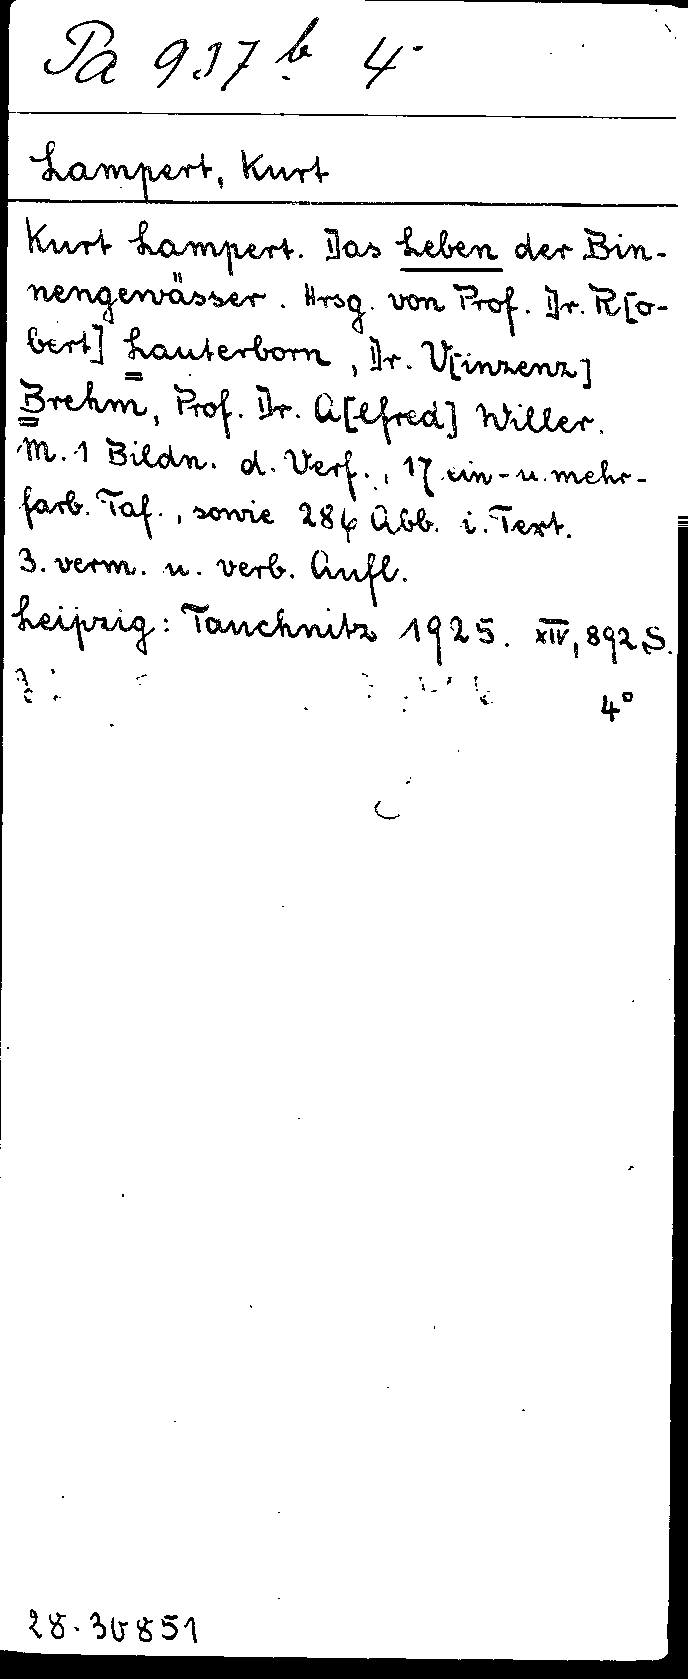 Pa 937 b 4°
Lampert, Kurt
Kurt Lampert. Das Leben der Bin-
nengewässer. Hrsg. von Prof. Dr. R[o-
bert] Lauterborn, Dr. V[inzenz]
Brehm, Prof. Dr. A[lfred] Willer.
M. 1 Bildn. d. Verf., 17 ein- u. mehr-
farb. Taf., sowie 286 Abb. i. Text.
3. verm. u. verb. Aufl.
Leipzig: Tauchnitz 1925. XIV, 892 S.
4°
28.30851